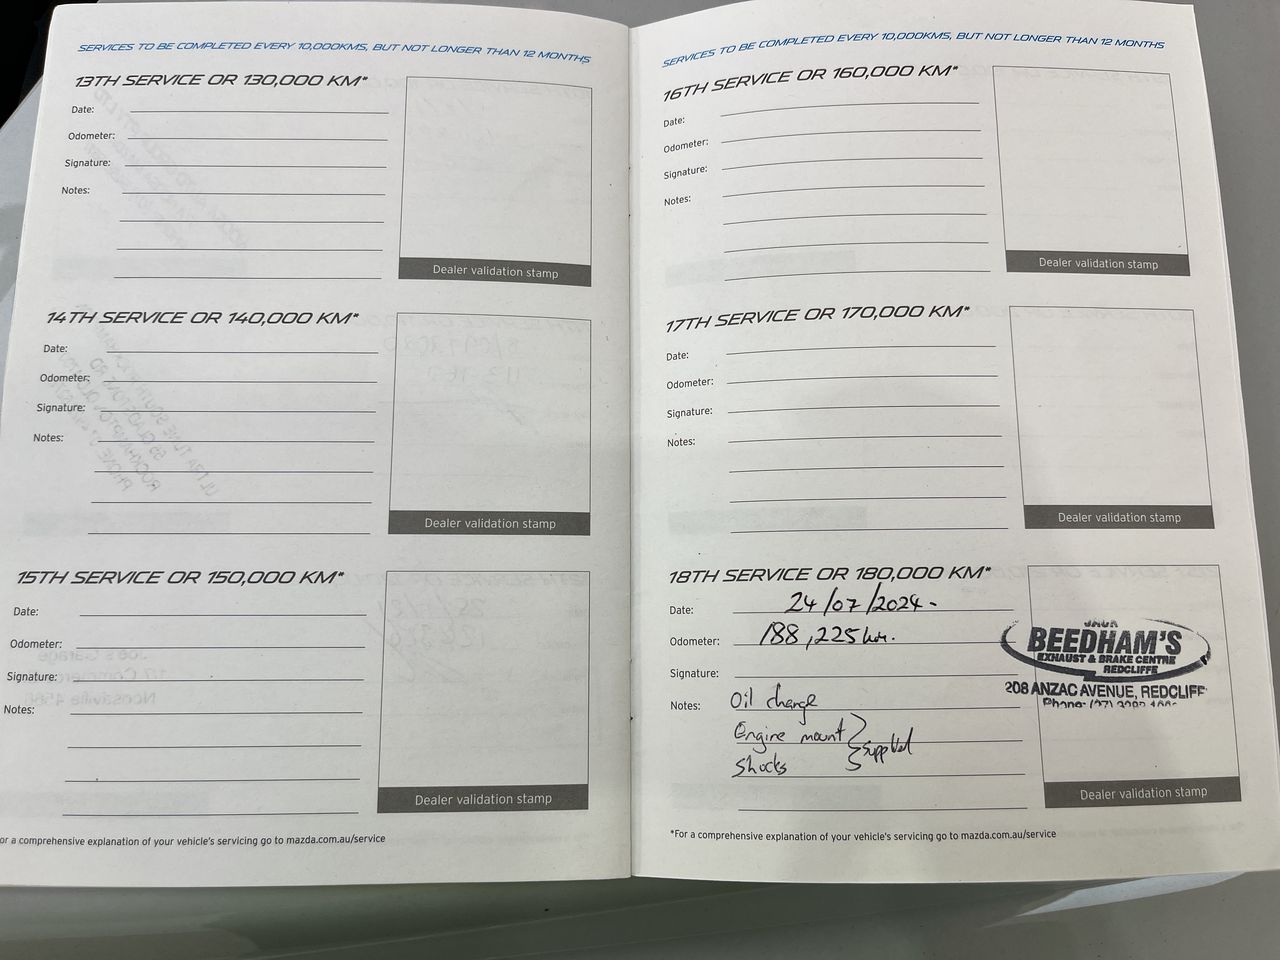 SERVICES TO BE COMPLETED EVERY 10,000KMS, BUT NOT LONGER THAN 12 MONTHS
13TH SERVICE OR 130,000 KM*
Date:
Odometer:
Signature:
Notes:
Dealer validation stamp
14TH SERVICE OR 140,000 KM*
Date:
Odometer:
Signature:
Notes:
Dealer validation stamp
15TH SERVICE OR 150,000 KM*
Date:
Odometer:
Signature:
Notes:
Dealer validation stamp
or a comprehensive explanation of your vehicle's servicing go to mazda.com.au/service
SERVICES TO BE COMPLETED EVERY 10,000KMS, BUT NOT LONGER THAN 12 MONTHS
16TH SERVICE OR 160,000 KM*
Date:
Odometer:
Signature:
Notes:
Dealer validation stamp
17TH SERVICE OR 170,000 KM*
Date:
Odometer:
Signature:
Notes:
Dealer validation stamp
18TH SERVICE OR 180,000 KM*
Date: 24/07/2024.
Odometer: 188,225km.
Signature:
Notes: Oil change
Engine mount } supplied
Shocks
JACK
BEEDHAM'S
EXHAUST & BRAKE CENTRE
REDCLIFFE
208 ANZAC AVENUE, REDCLIFF
Phone: (07)
Dealer validation stamp
*For a comprehensive explanation of your vehicle's servicing go to mazda.com.au/service